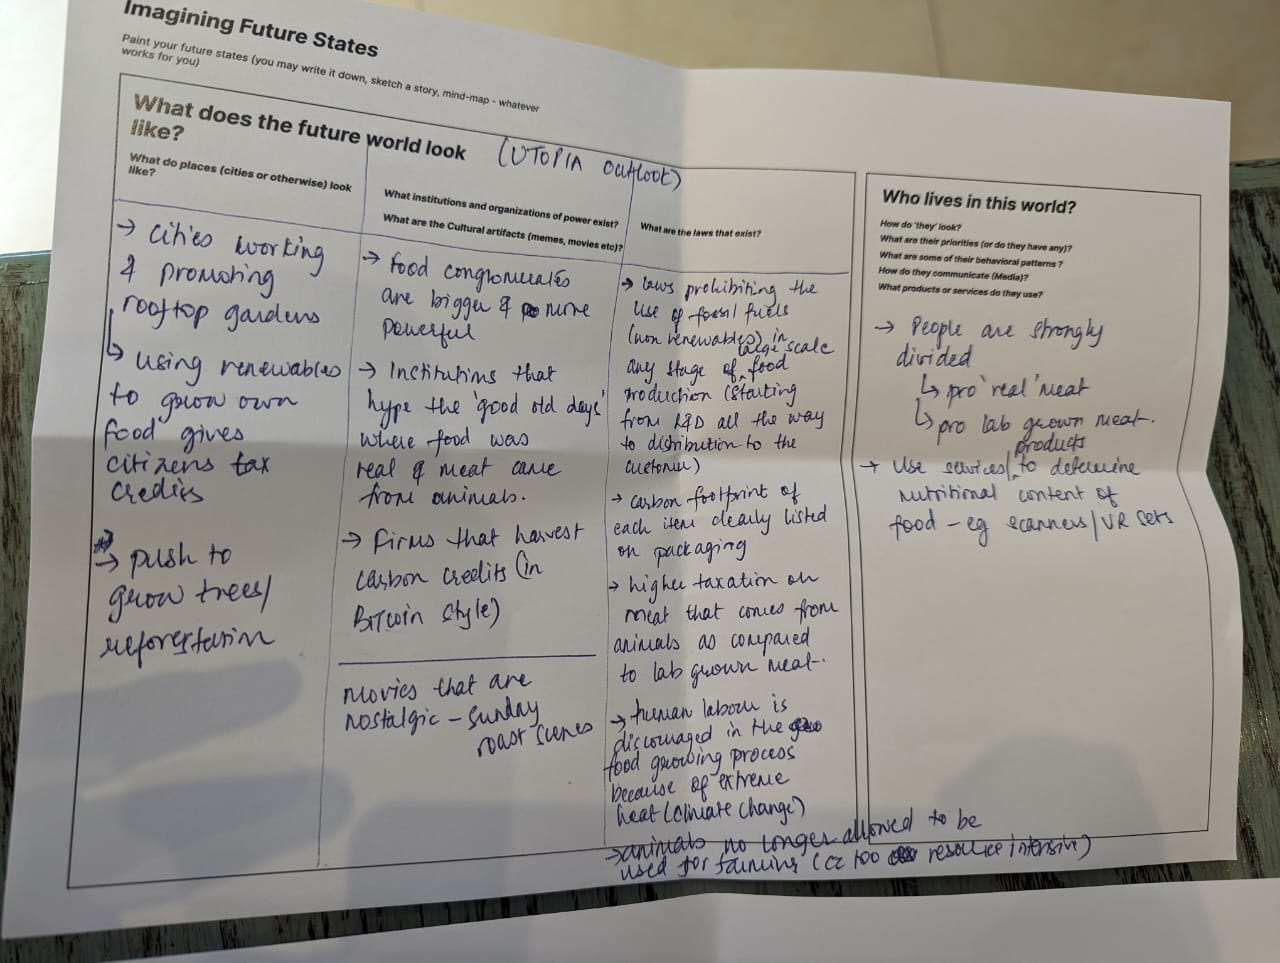 Imagining Future States
Paint your future states (you may write it down, sketch a story, mind-map - whatever
works for you)
What does the future world look
like?
(UTOPIA OUTLOOK)
What do places (cities or otherwise) look
like?
→ cities working
& promoting
rooftop gardens
↳ using renewables
to grow own
food gives
citizens tax
credits
→ push to
grow trees/
reforestation
What institutions and organizations of power exist?
What are the Cultural artifacts (memes, movies etc)?
→ food conglomerates
are bigger & more
powerful
→ Institutions that
hype the 'good old days'
where food was
real & meat came
from animals.
→ Firms that harvest
carbon credits (in
BitCoin style)
Movies that are
nostalgic - Sunday
roast scenes
What are the laws that exist?
→ laws prohibiting the
use of fossil fuels
(non renewables) in
any stage of large scale food
production (starting
from R&D all the way
to distribution to the
customer)
→ carbon footprint of
each item clearly listed
on packaging
→ higher taxation on
meat that comes from
animals as compared
to lab grown meat.
→ human labour is
discouraged in the
food growing process
because of extreme
heat (climate change)
→ animals no longer allowed to be
used for farming (cz too resource intensive)
Who lives in this world?
How do 'they' look?
What are their priorities (or do they have any)?
What are some of their behavioral patterns ?
How do they communicate (Media)?
What products or services do they use?
→ People are strongly
divided
↳ pro 'real' meat
↳ pro lab grown meat.
→ Use services/products to determine
nutritional content of
food - eg scanners/VR sets